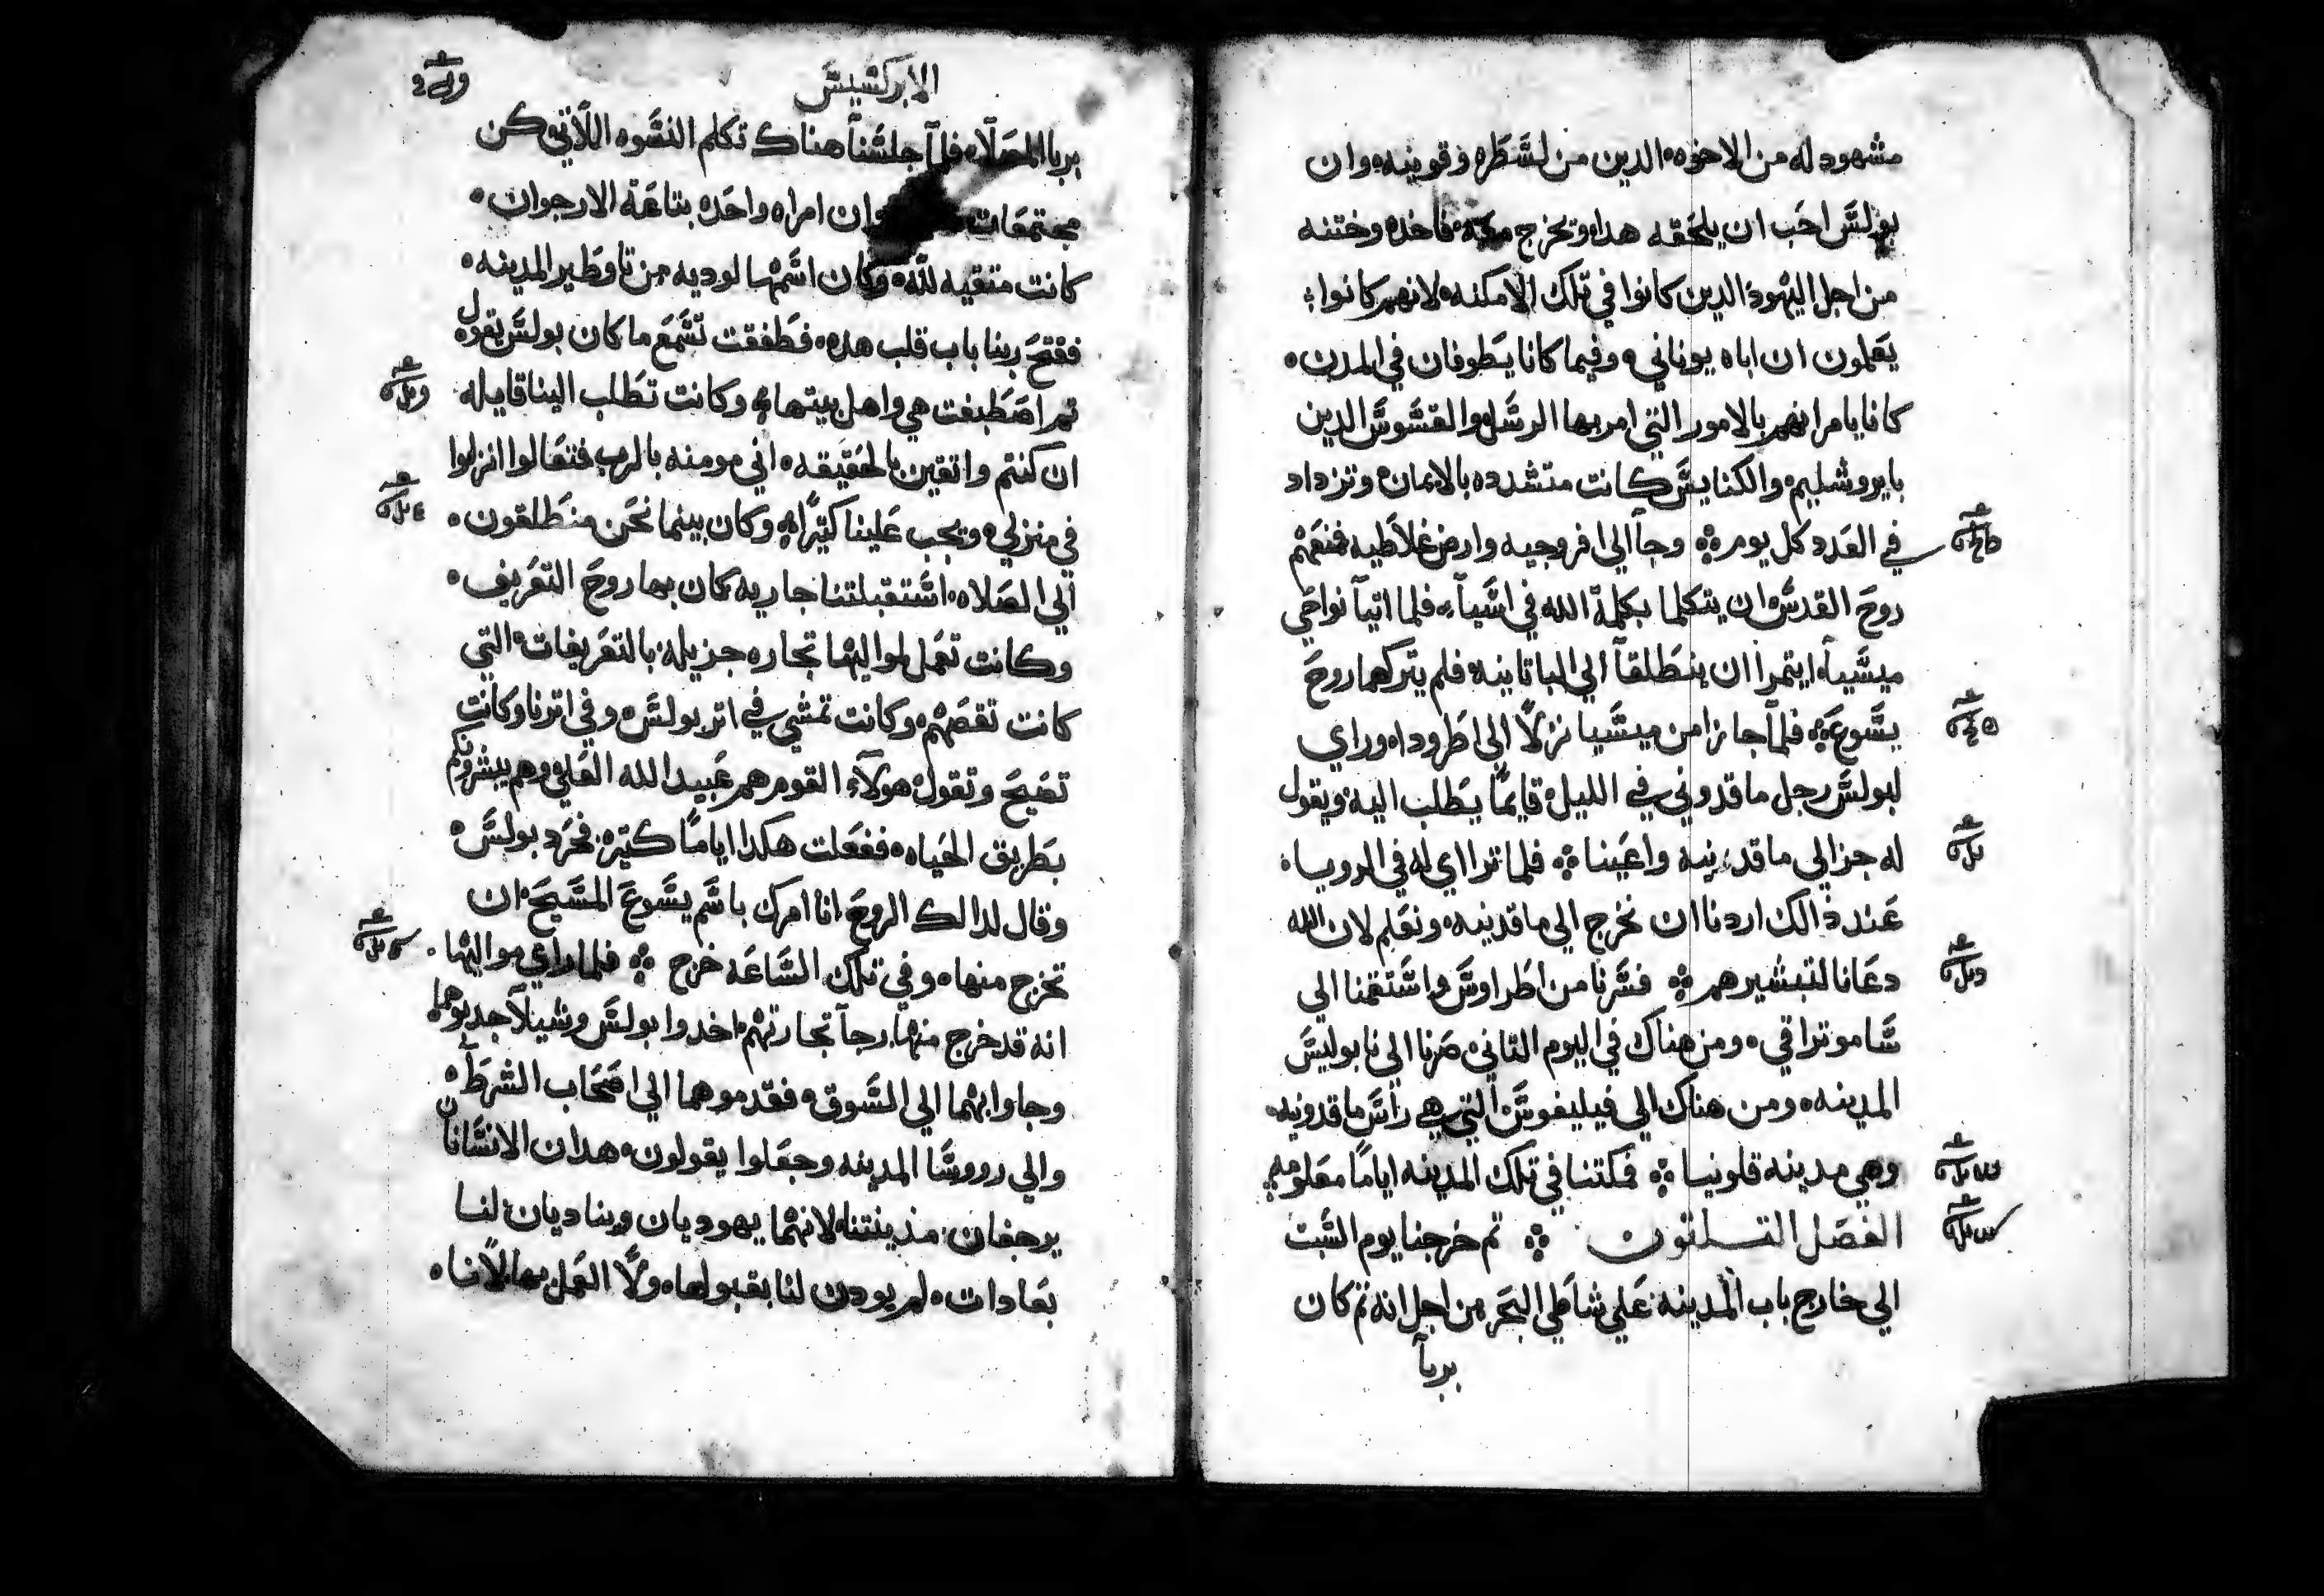 مشهود له من الاخوه الدين من لسَّطَره وقونيه وان
بولسَّ احَب ان يلحَقه هدا وتخرج معَه فاخده وختنه
من اجل اليهود الدين كانوا في تلك الامكنه لانهم كانوا
يعَلمون ان اباه يوناني وفيما كانا يطَوفان في المدن
كانا يامرانهم بالامور التي امر بها الرسَّل والقسَّوسَّ الدين
بايروشليم والكنايسَّ كانت متشدده بالايمان وتزداد
في العَدد كل يوم وجاَ الي افروجيه وارض غلاطَيه فمنعَهم
روحَ القدسَّ ان يتكلما بكلمة الله في اسَّياَ فلما اتياَ نواحَي
ميسَّياَ ايتمرا ان ينطَلقاَ الي الباتانيه فلم يتركهما روحَ
يسَّوعَ فلماَ جازا من ميسَّيا نزلاً الي اطَروداه وراي
لبولسَّ رجل ماقدوني في الليل قايماً يطَلب اليه ويقول
له جز الي ماقدونيه واعَينا فلما تراا اي له في الرويا
عَند ذالك اردنا ان نخرج الي ماقدينه ونعَلم لان الله
دعَانا لتبشيرهم فسَّرنا من اطَراوسَّ واسَّتقمنا الي
سَّاموتراقي ومن هناك في اليوم التاني صَرنا الي نابوليسَّ
المدينه ومن هناك الي فيليفوسَّ التي هي راسَّ ماقدونيه
وهي مدينه قلونيا فمكتنا في تلك المدينه اياماً معَلومه
الفصَل التلتون تم خرجنا يوم السَّبت
الي خارج باب المدينه عَلي شاطَي البحَر من اجل انه تم كان
برياَ
الابركسَّيسَّ
بريا المصَلاه فلماَ جلسَّناَ هناك تكلم النسَّوه اللاتي كن
مجتمعَات وان امراه واحَده بتاعَة الارجوان
كانت متقيه لله وكان اسَّمها لوديه من تاوطَير المدينه
ففتحَ ربنا باب قلب هده فطَفقت تسَّمعَ ما كان بولسَّ يقول
تم اصَطَبغت هي واهل بيتها وكانت تطَلب الينا قايله
ان كنتم واتقين بالحَقيقه اني مومنه بالرب فتعَالوا انزلوا
في منزلي ويجب عَلينا كتيراً وكان بينما نحَن منطَلقون
الي الصَلاه اسَّتقبلتنا جاريه كان بها روحَ التعَريف
وكانت تعَمل لمواليها تجاره جزيله بالتعَريفات التي
كانت تقصَهم وكانت تمشي في اتر بولسَّ وفي اترنا وكانت
تصَيحَ وتقول هولاَء القوم هم عَبيد الله العَلي وهم يبشرونكم
بطَريق الحَياه ففعَلت هكدا اياماً كتيره فحَرد بولسَّ
وقال لدالك الروحَ انا امرك باسَّم يسَّوعَ المسَّيحَ ان
تخرج منها وفي تلك السَّاعَه خرج فلما راي مواليها
انه قد خرج منها رجاَ تجارتهم اخدوا بولسَّ وشيلاَ جدبوهما
وجاوا بهما الي السَّوق فقدموهما الي اصَحَاب الشرطَ
والي رووسَّا المدينه وجعَلوا يقولون هدان الانسَّانان
يرجفان مدينتنا لانهما يهوديان ويناديان لنا
بعَادات لم يودن لنا بقبولها ولاَ العَمل بها لاَنا